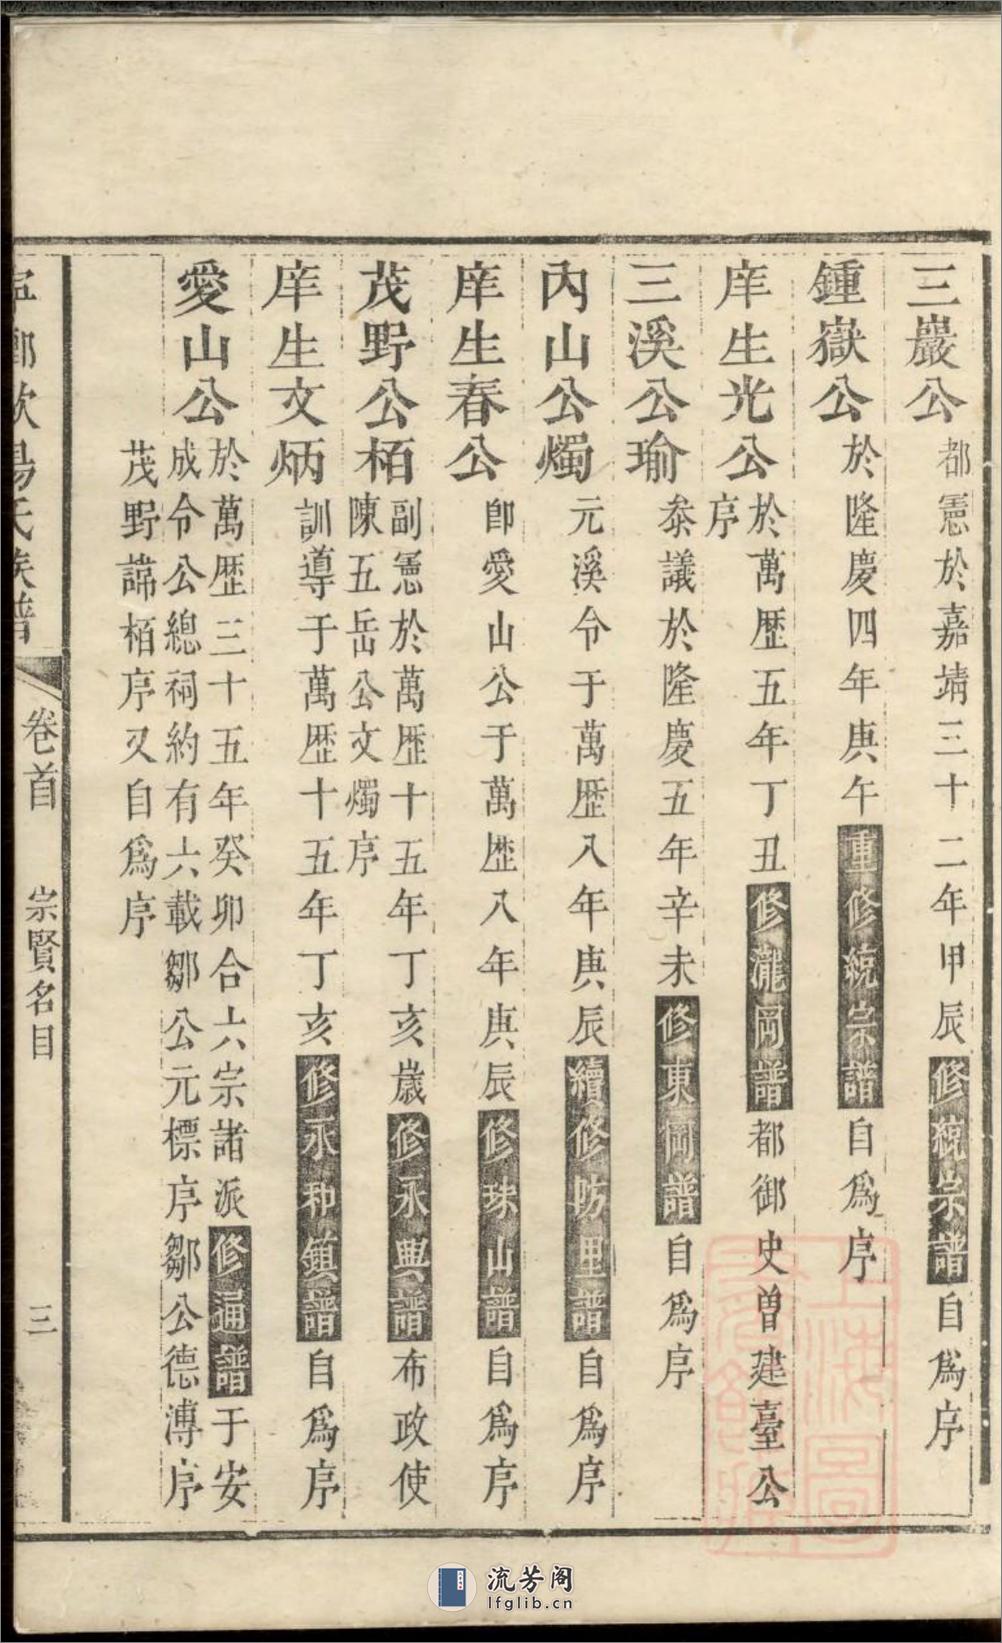 三巖公都憲於嘉靖三十二年甲辰修統宗譜自爲序
鍾嶽公於隆慶四年庚午重修統宗譜自爲序
庠生光公於萬歷五年丁丑修瀧岡譜都御史曽建臺公
序
三溪公瑜叅議於隆慶五年辛未修東岡譜自爲序
內山公燭元溪令于萬歷八年庚辰續修防里譜自爲序
庠生春公卽愛山公于萬歷八年庚辰修珠山譜自爲序
茂野公栢副憲於萬歷十五年丁亥歲修永興譜布政使
陳五岳公文燭序
庠生文炳訓導于萬歷十五年丁亥修永和鎮譜自爲序
愛山公於萬歷三十五年癸卯合六宗諸派修通譜于安
成令公總祠約有六載鄒公元標序鄒公德溥序
茂野諱栢序又自爲序
歐陽氏族譜
卷首
宗賢名目
三
上海圖
書館藏
流芳阁
lfglib.cn